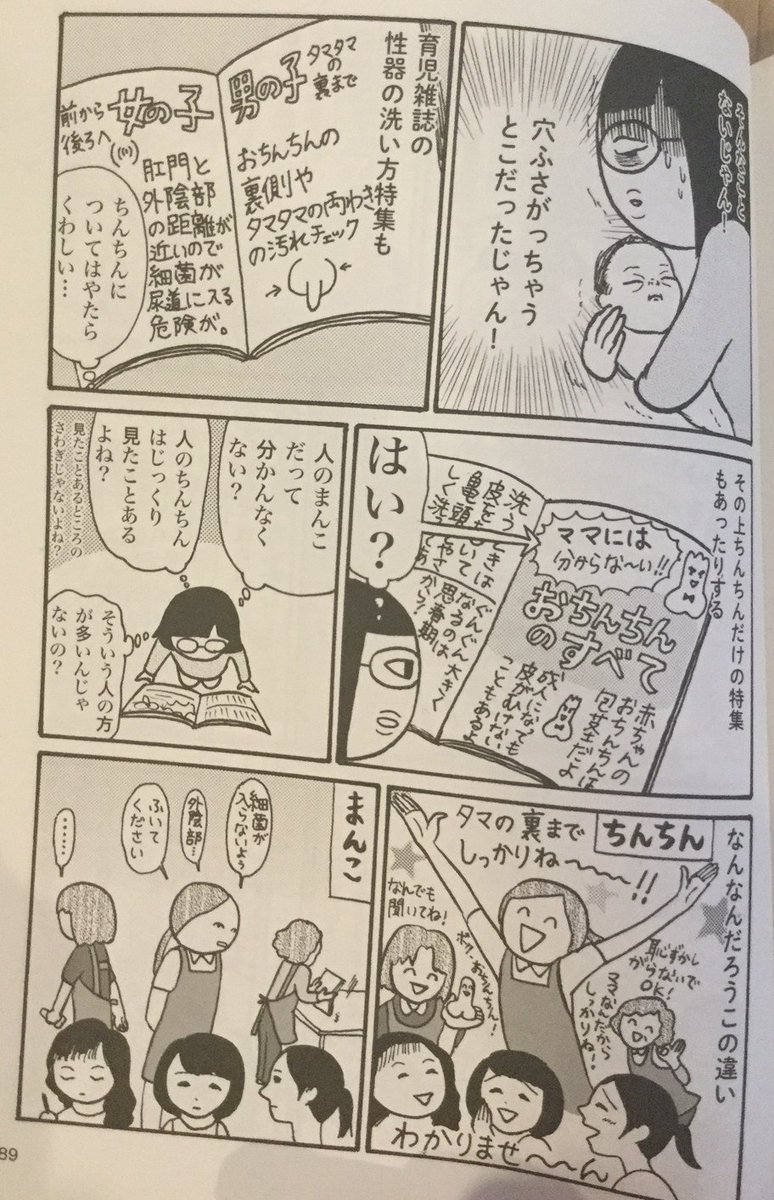 ないじゃん!
穴ふさがっちゃう
とこだったじゃん!
育児雑誌の
性器の洗い方特集も
男の子
タマタマ
の
裏まで
おちんちんの
裏側や
タマタマの両わき
の汚れチェック
女の子
前から
後ろへ
肛門と
外陰部
の距離が
近いので
細菌が
尿道に入る
危険が。
ちんちんに
ついてはやたら
くわしい…
その上ちんちんだけの特集
もあったりする
ママには
分からな〜い!!
おちんちん
のすべて
赤ちゃんの
おちんちんは
包茎だよ
成人になっても
皮がむけない
こともあるよ
ぐんぐん大きく
なるのは
思春期
から!
洗う
皮を
亀頭
しく洗
はい?
人のまんこ
だって
分かんなく
ない?
人のちんちん
はじっくり
見たことある
よね?
見たことあるどころの
さわぎじゃないよね?
そういう人の方
が多いんじゃ
ないの?
なんなんだろうこの違い
ちんちん
タマの裏まで
しっかりね〜〜〜!!
なんでも
聞いてね!
ボク、おちんちん!
恥ずかし
がらないで
OK!
ママなんだから
しっかりね!
わかりませ〜〜ん
まんこ
細菌が
入らないよう
外陰部…
ふいて
ください
………
89